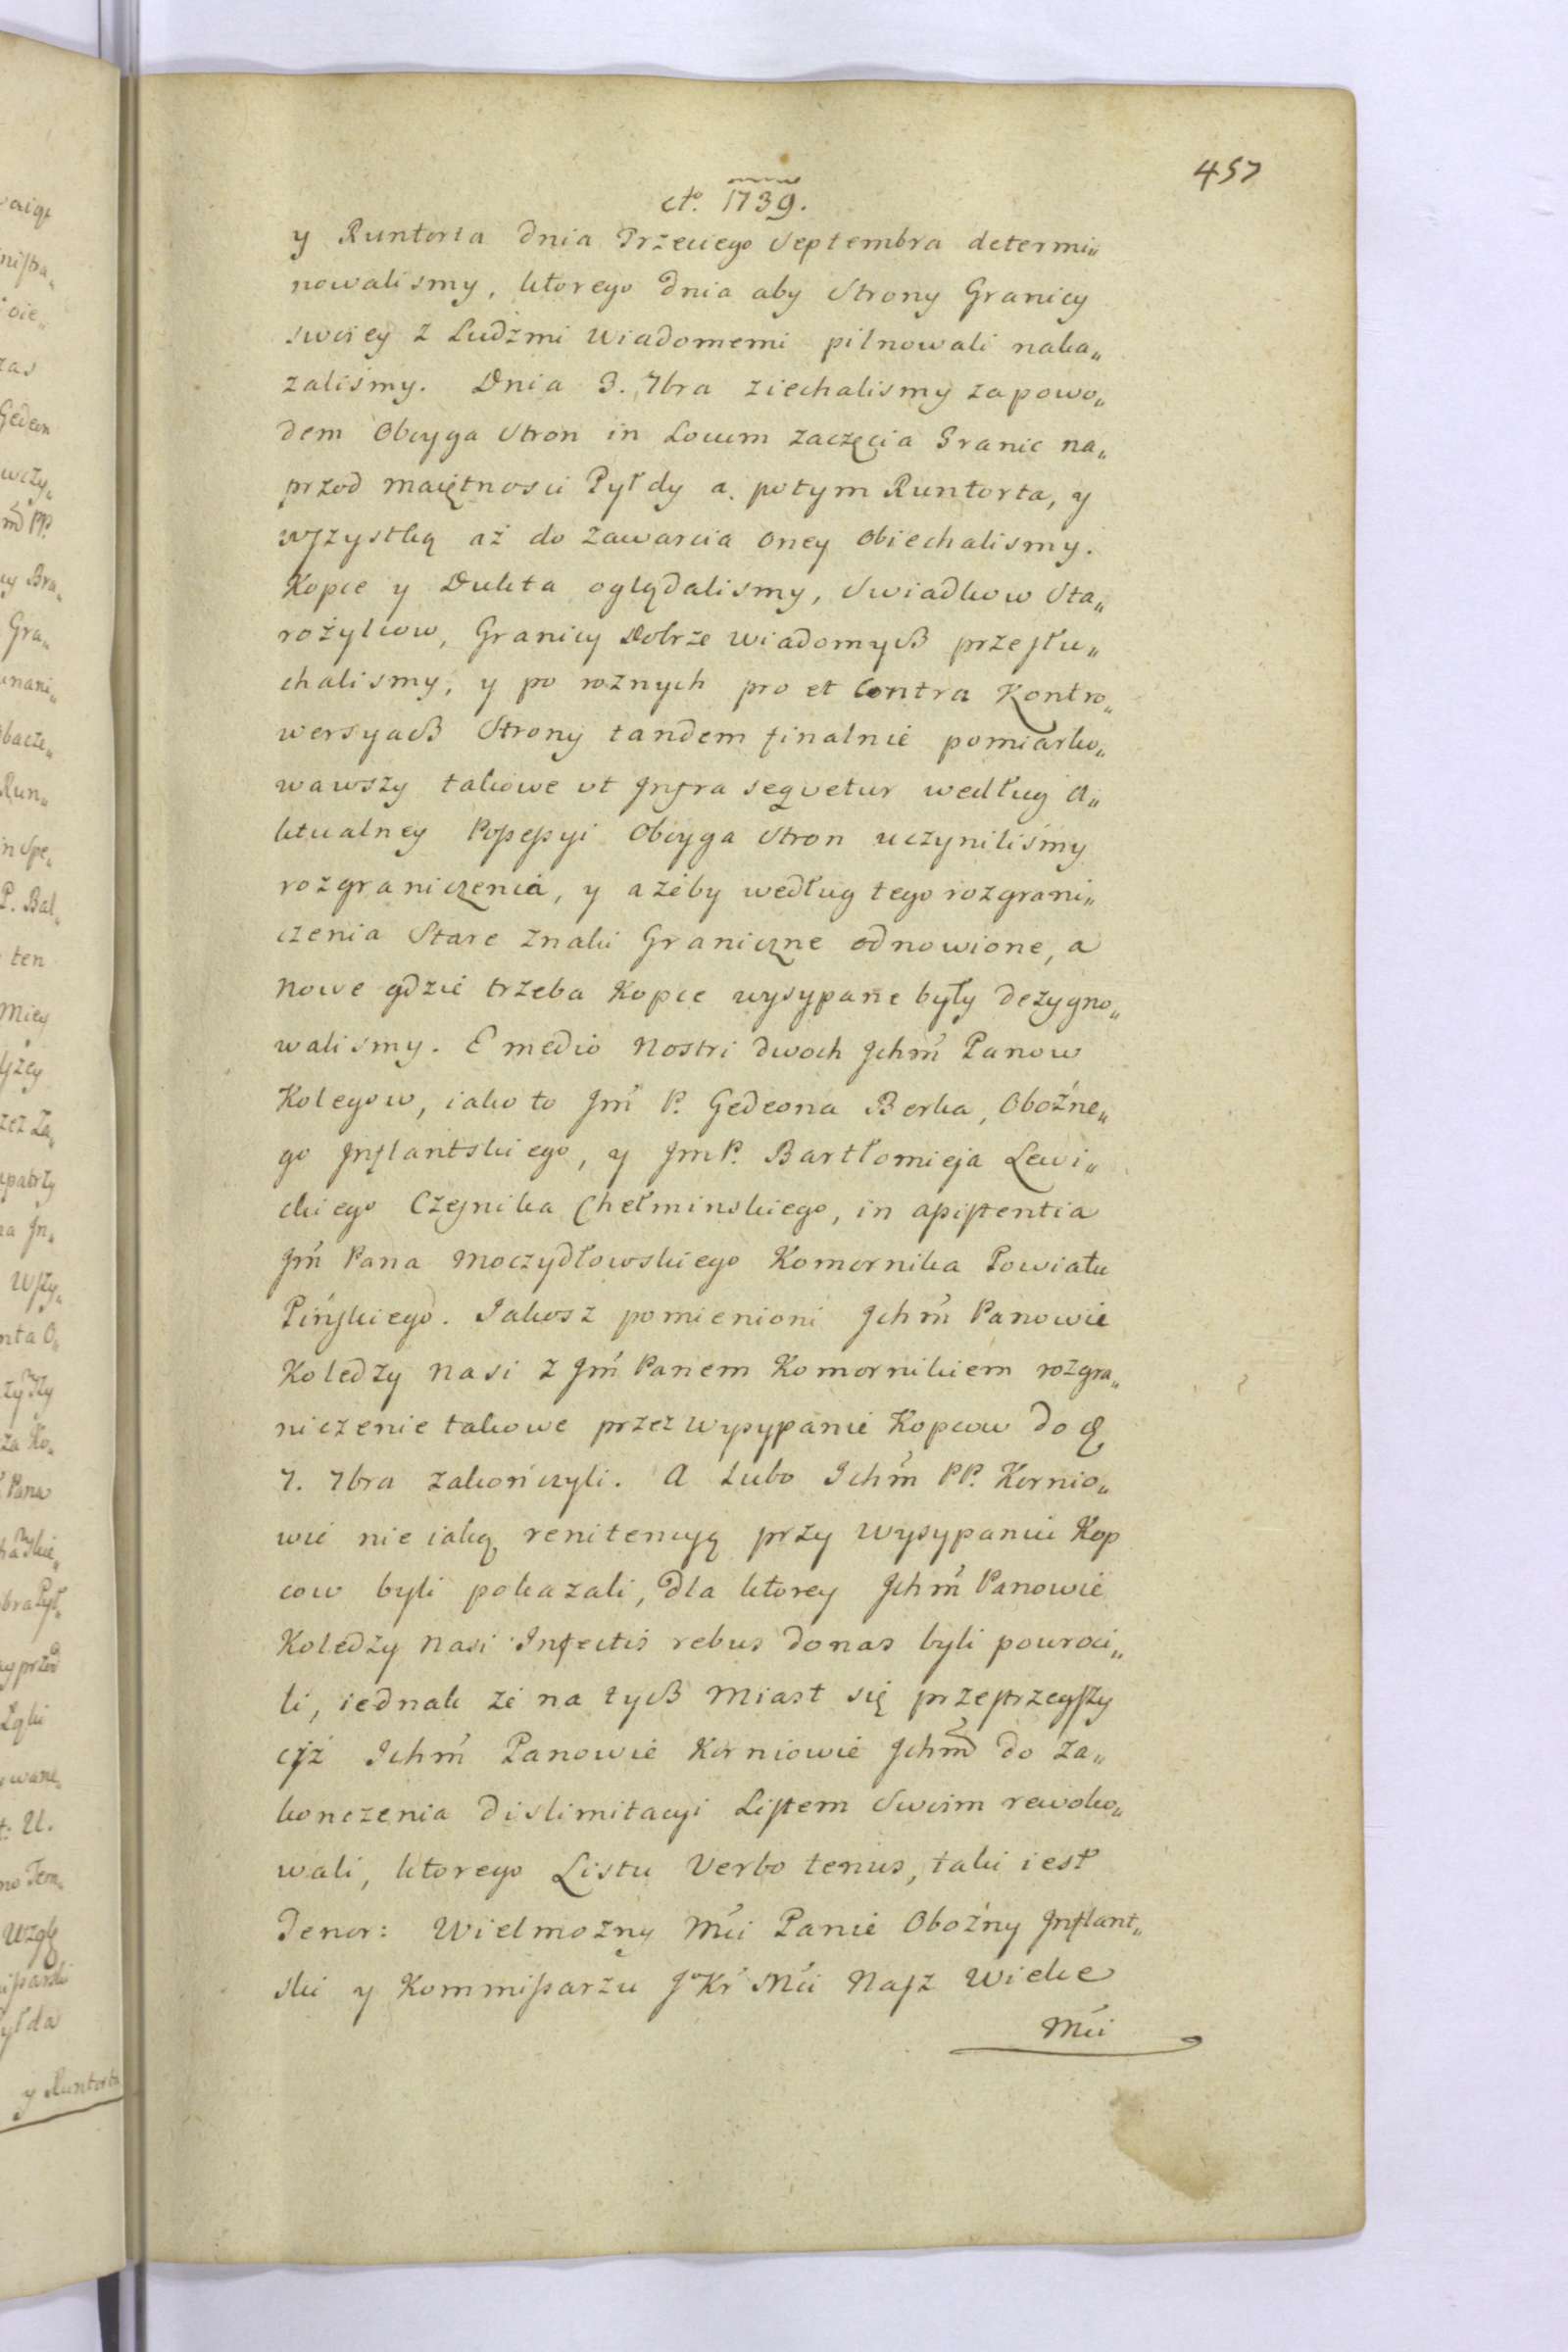 457
A͠o. 1739.
y Runtorta dnia Trzeciego Septembra determi„
nowalismy, ktorego dnia aby Strony Granicy
swoiey z Ludźmi wiadomemi pilnowali naka„
zaliśmy. Dnia 3. 7bra ziechalismy za powo„
dem Obojga Stron in Locum zaczęcia Granic na„
przod maiętnosci Pyłdy a potym Runtorta, y
wszystką aż do zawarcia oney obiechalismy.
Kopce y Dukta oglądalismy, Swiadkow Sta„
rożytow, Granicy Dobrze wiadomych przesłu„
chalismy, y po roznych pro et Contra Kontro„
wersyach Strony tandem finalnie pomiarko„
wawszy takowe ut Infra sequetur według A„
ktualney Possessyi Oboyga Stron uczyniliśmy
rozgraniczenia, y ażeby według tego rozgrani„
czenia Stare znaki Graniczne odnowione, a
nowe gdzie trzeba Kopce wysypane były dezygno„
walismy. E medio Nostri dwoch Jchm Panow
Kolegow, iako to Jm P. Gedeona Berka, Oboźne„
go Inflantskiego, y JmP. Bartłomieja Lewi„
ckiego Czesnika Chełminskiego, in assistentia
Jm Pana Moczydłowskiego Komornika Powiatu
Pińskiego. Jakosz pomienioni Jchm Panowie
Koledzy Nasi z Jm Panem Komornikiem rozgra„
niczenie takowe przez wysypanie Kopcow do d.
7. 7bra zakończyli. A Lubo Jchm PP. Kornio„
wie nie iaką renitencyą przy wysypaniu Kop
cow byli pokazali, dla ktorey Jchm Panowie
Koledzy Nasi Infectis rebus do nas byli powroci„
li, iednak że na tych miast się przestrzegszy
ciż Jchm Panowie Korniowie Jchm do za„
konczenia dislimitacyi Listem Swoim rewoko„
wali, ktorego Listu Verbo tenus, taki iest
Tenor: Wielmożny Mći Panie Oboźny Inflant„
ski y Kommissarzu Jo Kr Mći Nasz Wielce
Mći